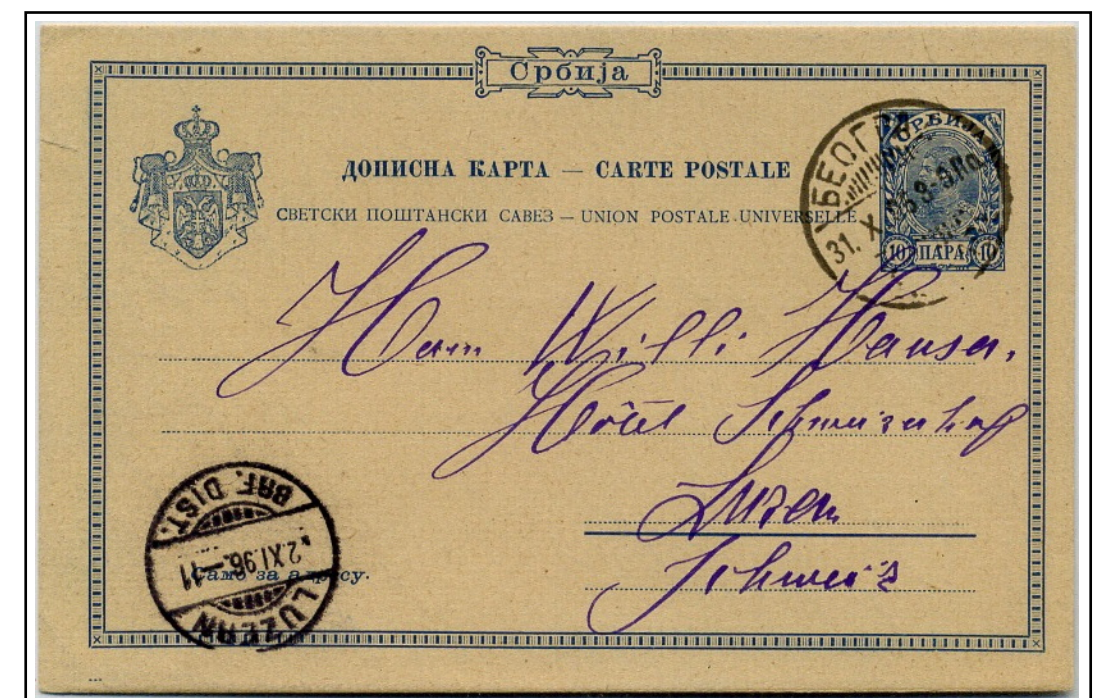 Србија
ДОПИСНА КАРТА — CARTE POSTALE
СВЕТСКИ ПОШТАНСКИ САВЕЗ — UNION POSTALE UNIVERSELLE
СРБИЈА
10 ПАРА 10
БЕОГР
31. X. 96 8-9
Herrn Willi Hauser,
Hôtel Schweizerhof
Luzern
Schweiz
BRF. DIST.
2.XI.96.–11
LUZERN
Само за адресу.